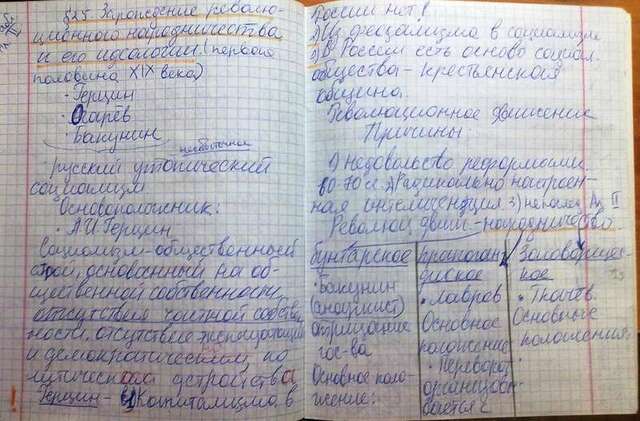 §25. Зарождение револю-
ционного народничества
и его идеологии (первая
половина XIX века)
· Герцин
· Огарёв
· Бакунин
необыточное
· русский утопический
социализм
Основоположник:
· А.И. Герцин
Социализм - общественный
строй, основанный на об-
щественной собственности,
отсутствия частной собств
ности, отсутствие эксплуатации
и демократическом по
литическом устройства
Герцин - 1) Капитализма в
России нет!
2) Из феодализма в социализм
3) В России есть основа социал.
общества - крестьянская
община.
Революционное движение
Причины:
1) недовольство реформами
60-70 гг. 2) Радикально настроен-
ная интелигенция 3) Ал. II
Революц. движ. - народничество
бунтарское
· Бакунин
(анархист)
отрицание
гос-ва
Основное поло-
жение:
пропаган-
дисткое
· Лавров
Основное
положение
· Переворот
организов
вается с
Заговорщес-
кое
· Ткачёв.
Основное
положения:
·